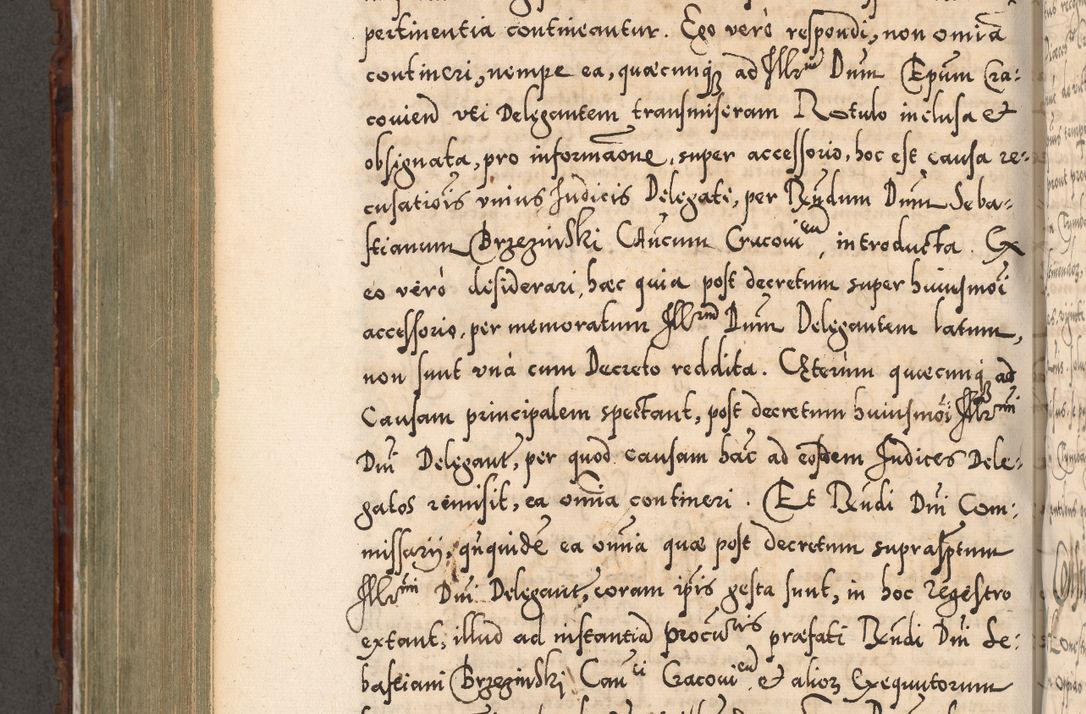 pertinentia contineantur. Ego verò respondi, non omia
contineri, nempe ea, quæcunqȝ ad Illrm Dnm Epum Cra-
covien vti Delegantem transmiseram Rotulo inclusa et
obsignata, pro informaone, super accessorio, hoc est causa re-
cusatiois vnius Judicis Delegati, per Rndum Dnm Seba-
stianum Brzezinski Cancum Cracovien introducta. Ex
eo verò desiderari, hæc quia post decretum super huiusmoi
accessorio, per memoratum Illrm Dnm Delegantem latum,
non sunt vnà cum Decreto reddita. Cęterùm quæcunqȝ ad
Causam principalem spectant, post decretum huiusmoi Illrmi
Dni Delegant, per quod causam hac ad eosdem Judices Dele-
gatos remisit, ea omia contineri. Et Rndi Dni Com-
missarij, qnquide ea omia quæ post decretum suprasptum
Illrmi Dni Delegant, coram ipis gesta sunt, in hoc regestro
extant, illud ad instantia procuris præfati Rndi Dni Se-
bastiani Brzezinski Canci Cracovien et alioȝ Exequutorum